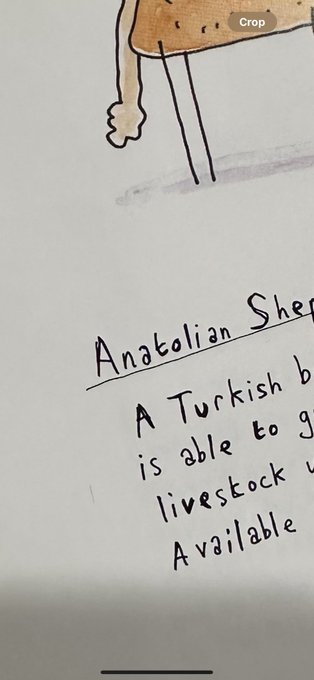 Crop
Anatolian Shep
A Turkish b
is able to g
livestock
Available